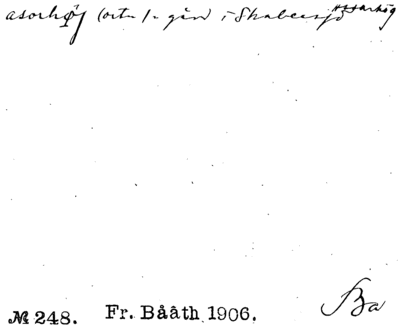 asorhøj (ortn.) - gård i Skabersjö Assarhög
№ 248. Fr. Bååth 1906. Ba